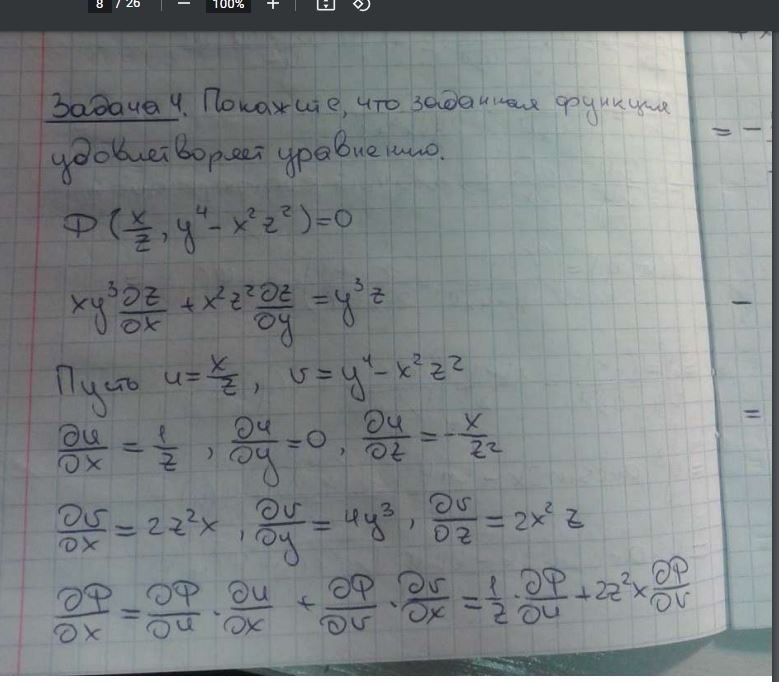 8 / 26 — 100% +
Задача 4. Покажите, что заданная функция
удовлетворяет уравнению.
Ф(x/z, y⁴ - x²z²) = 0
xy³ ∂z/∂x + x²z² ∂z/∂y = y³z
Пусть u = x/z, v = y⁴ - x²z²
∂u/∂x = 1/z, ∂u/∂y = 0, ∂u/∂z = -x/z²
∂v/∂x = 2z²x, ∂v/∂y = 4y³, ∂v/∂z = 2x²z
∂Ф/∂x = ∂Ф/∂u · ∂u/∂x + ∂Ф/∂v · ∂v/∂x = 1/z · ∂Ф/∂u + 2z²x ∂Ф/∂v
= -
-
=